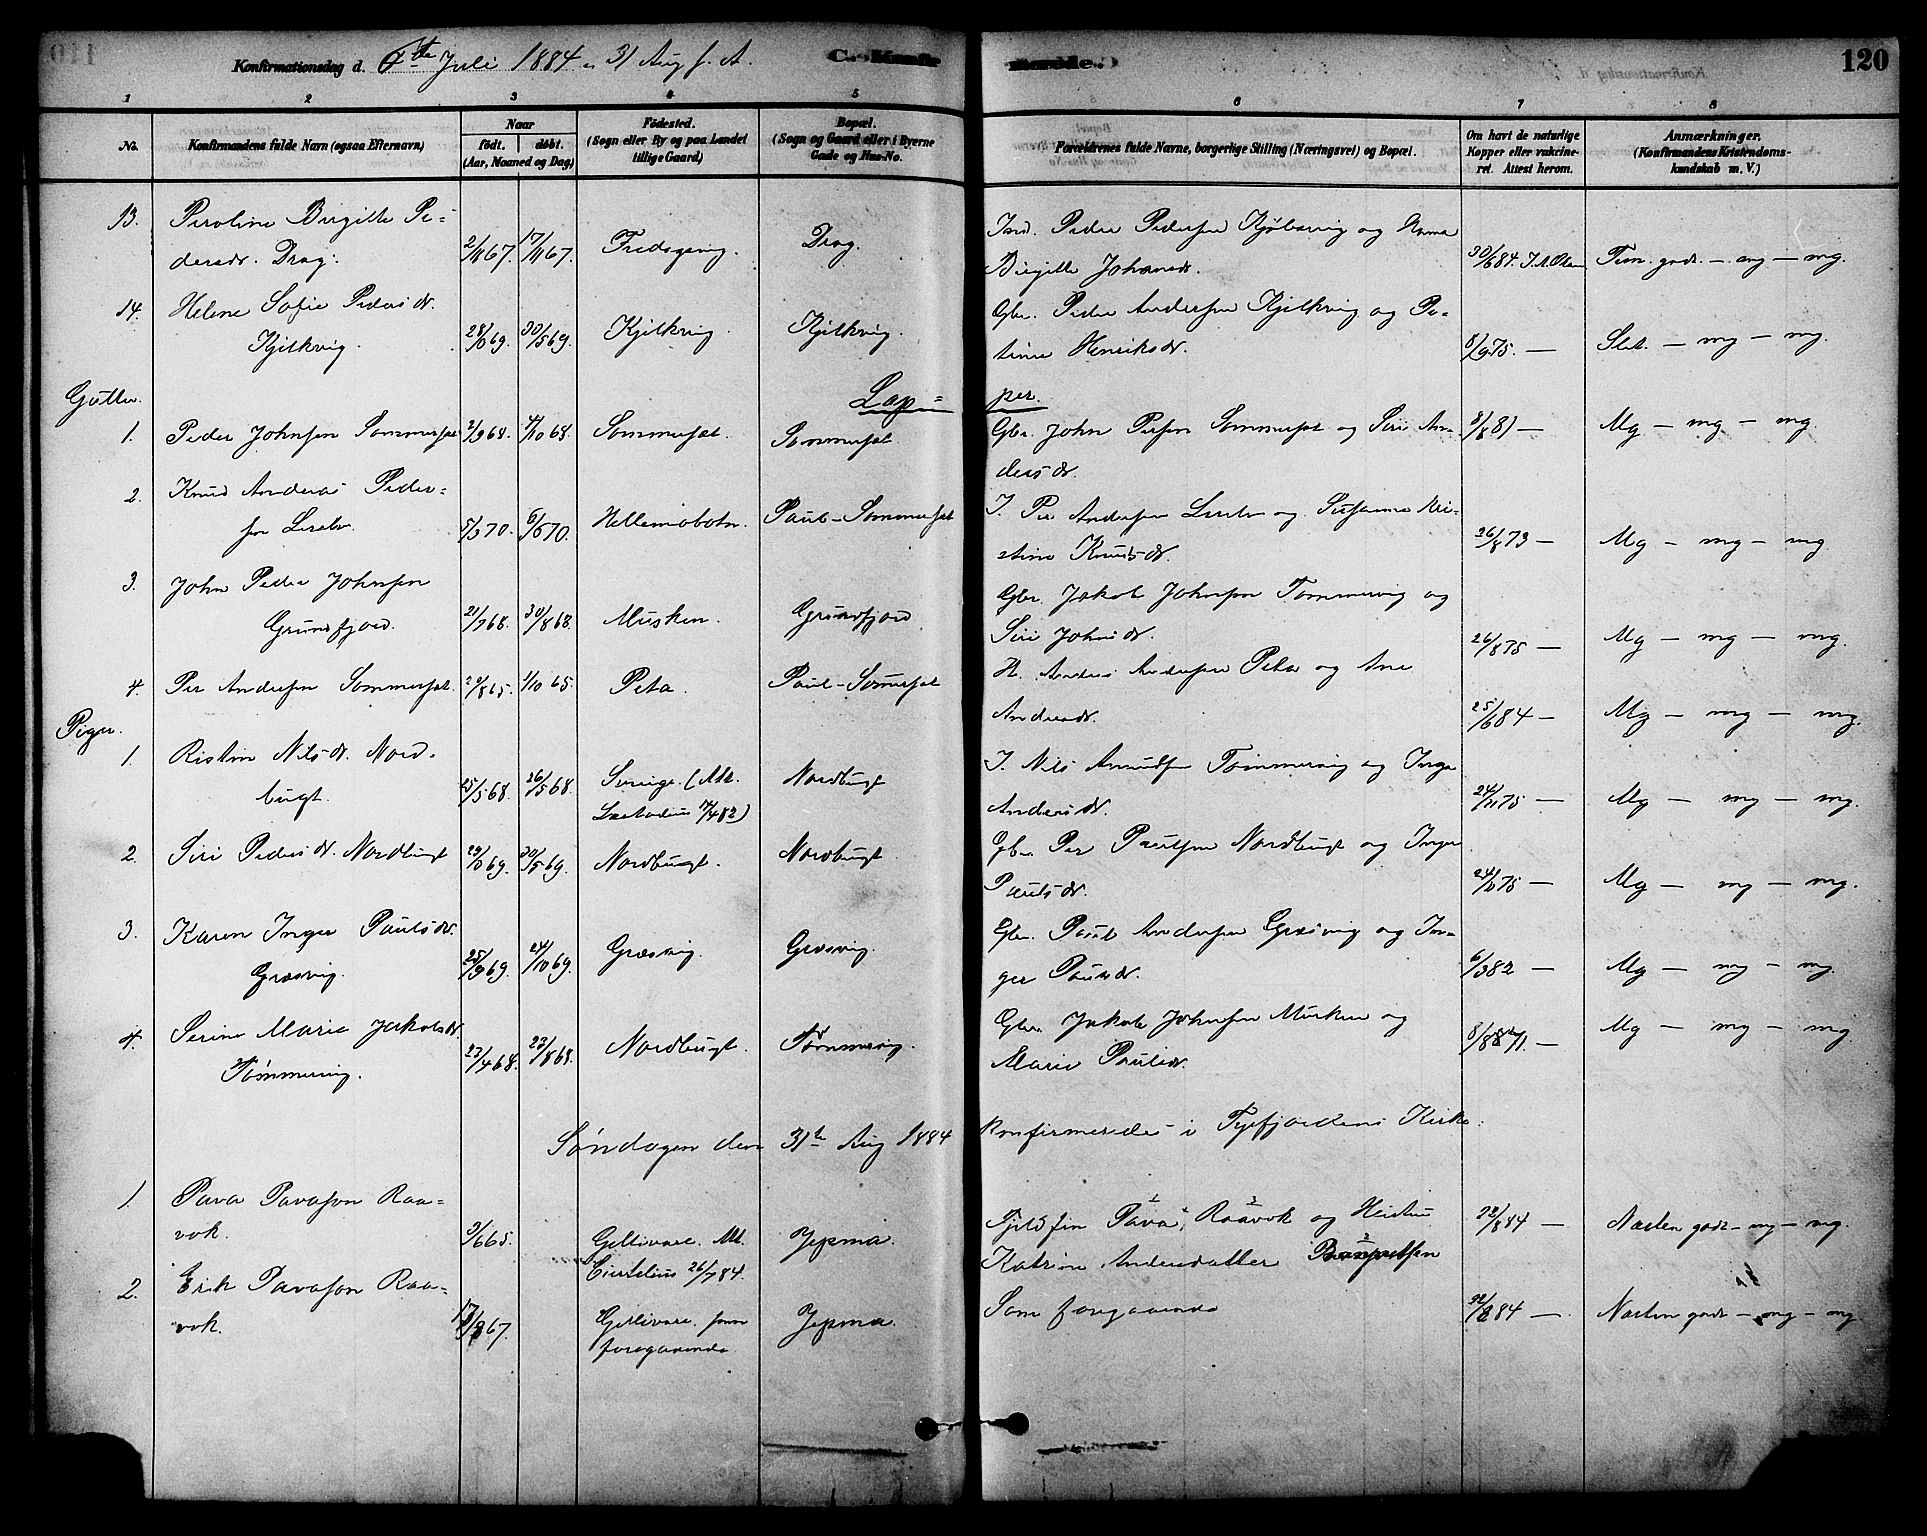 Konfirmationsdag d. 6te Juli 1884 31 Aug s. A. C. Konfir merede. 120
1 2 3 4 5 6 7 8
No. Konfirmandens fulde Navn (ogsaa Efternavn) Naar født. døbt. (Aar, Maaned og Dag) Fødested. (Sogn eller By og paa Landet tillige Gaard) Bopæl. (Sogn og Gaard eller i Byerne Gade og Hus-No. Forældrenes fulde Navne, borgerlige Stilling (Næringsvei) og Bopæl. Om havt de naturlige Kopper eller vakcineret. Attest herom. Anmærkninger. (Konfirmandens Kristendomskundskab m. V.)
13. Peroline Birgitte Pe- Ind. Peder Pedersen Kjøbsvig og Hanna
dersdr. Drag. 2/11 67. 17/11 67. Fredsgavig. Drag. Birgitte Johansdr. 30/6 84. J. A. Olsen Tem. godt. – mg – mg.
14. Helene Sofie Pedersdr. Gbr. Peder Andersen Kjilkvig og Pe-
Kjilkvig. 28/ 69. 30/5 69. Kjilkvig. Kjilkvig. trine Henriksdr. 8/9 75. — Slet. – mg – mg.
Gutter. Lap- per.
1. Peder Johnsen Sommerset 2/9 68. 4/10 68. Sommerset. Sommerset Gbr. John Persen Sommerset og Siri An- 8/8 81 — Mg – mg – mg.
dersdr.
2. Knud Andreas Peder- J. Per Andersen og Susanna Kri-
sen 5/3 70. 6/6 70. Hellemobotn. Paul-Sommerset stine Knudsdr. 26/8 73 — Mg – mg – mg
3. John Peder Johnsen Gbr. Jakob Johnsen Tømmervig og
Grundfjord. 21/7 68. 30/8 68. Musken. Grundfjord Siri Johnsdr. 26/8 75 — Mg – mg – mg.
4. Per Andersen Sommerset. 29/8 65. 1/10 65. Peta. Paul-Sommerset H. Anders Andersen Peta og Ane
Andersdr. 25/6 84 — Mg – mg – mg.
Piger.
1. Ristin Nilsdr. Nord- J. Nils Amundsen Tømmervig og Inga
bugt. 25/5 68. 26/5 68. Sverige (Att. Nordbugt Andersdr. 24/11 75 — Mg – mg – mg.
Læstadius 14/4 82)
2. Siri Pedersdr. Nordbugt 29/ 69. 30/5 69. Nordbugt. Nordbugt. Gbr. Per Paulsen Nordbugt og Inga
Paulsdr. 24/ 75 — Mg – mg – mg.
3. Karen Inger Paulsdr. Gbr. Paul Andersen Græsvig og In-
Græsvig. 25/9 69. 24/10 69. Græsvig. Græsvig. ger Paulsdr. 6/3 82 — Mg – mg – mg.
4. Serine Marie Jakobsdr. Gbr. Jakob Johnsen Musken og
Tømmervig. 23/4 68. 23/8 68. Nordbugt. Tømmervig. Marie Paulsdr. Mg – mg – mg.
Søndagen den 31te Aug 1884 konfirmeredes i Tysfjordens Kirke.
1. Pava Pavason Raa- Fjeldfin Pava Raavok og Hustru
vok. 3/6 65. Gellivare. Att. Jepma. Katrine Andersdatter 22/8 84 — Næsten godt – mg – mg.
26/7 84.
2. Erik Pavason Raa- Som foregaaende 84 — Næsten godt – mg – mg.
vok. 67. Gellivare. som Jepma.
foregaaende